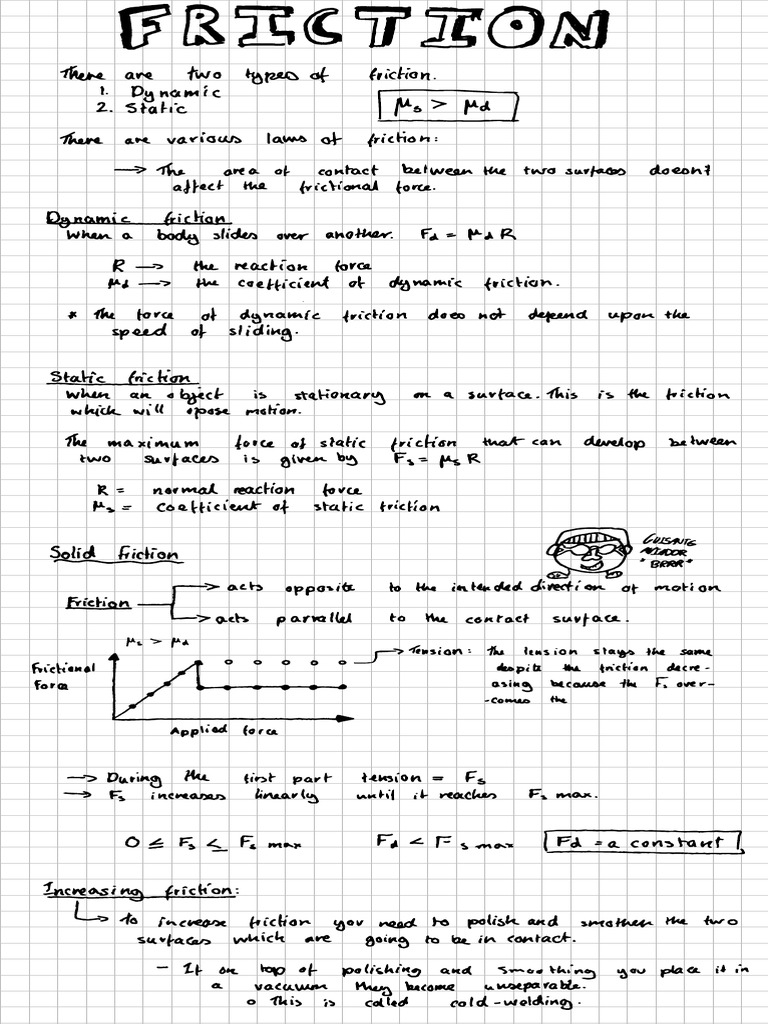 FRICTION
There are two types of friction.
1. Dynamic
2. Static
μs > μd
There are various laws of friction:
→ The area of contact between the two surfaces doesn't
affect the frictional force.
Dynamic friction
When a body slides over another. Fd = μd R
R → the reaction force
μd → the coefficient of dynamic friction.
* The force of dynamic friction does not depend upon the
speed of sliding.
Static friction
When an object is stationary on a surface. This is the friction
which will opose motion.
The maximum force of static friction that can develop between
two surfaces is given by Fs = μs R
R = normal reaction force
μs = coefficient of static friction
Solid friction
GUISANTE
"BRRR"
Friction
→ acts opposite to the intended direction of motion
→ acts parrallel to the contact surface.
μs > μd
Frictional
Force
Applied force
→ Tension: The tension stays the same
despite the friction decre-
asing because the Fs over-
-comes the
→ During the first part tension = Fs
→ Fs increases linearly until it reaches Fs max.
0 ≤ Fs ≤ Fs max Fd < Fs max Fd = a constant
Increasing friction:
→ To increase friction you need to polish and smothen the two
surfaces which are going to be in contact.
- If on top of polishing and smoothing you place it in
a vacuum they become unseparable.
o This is called cold-welding.